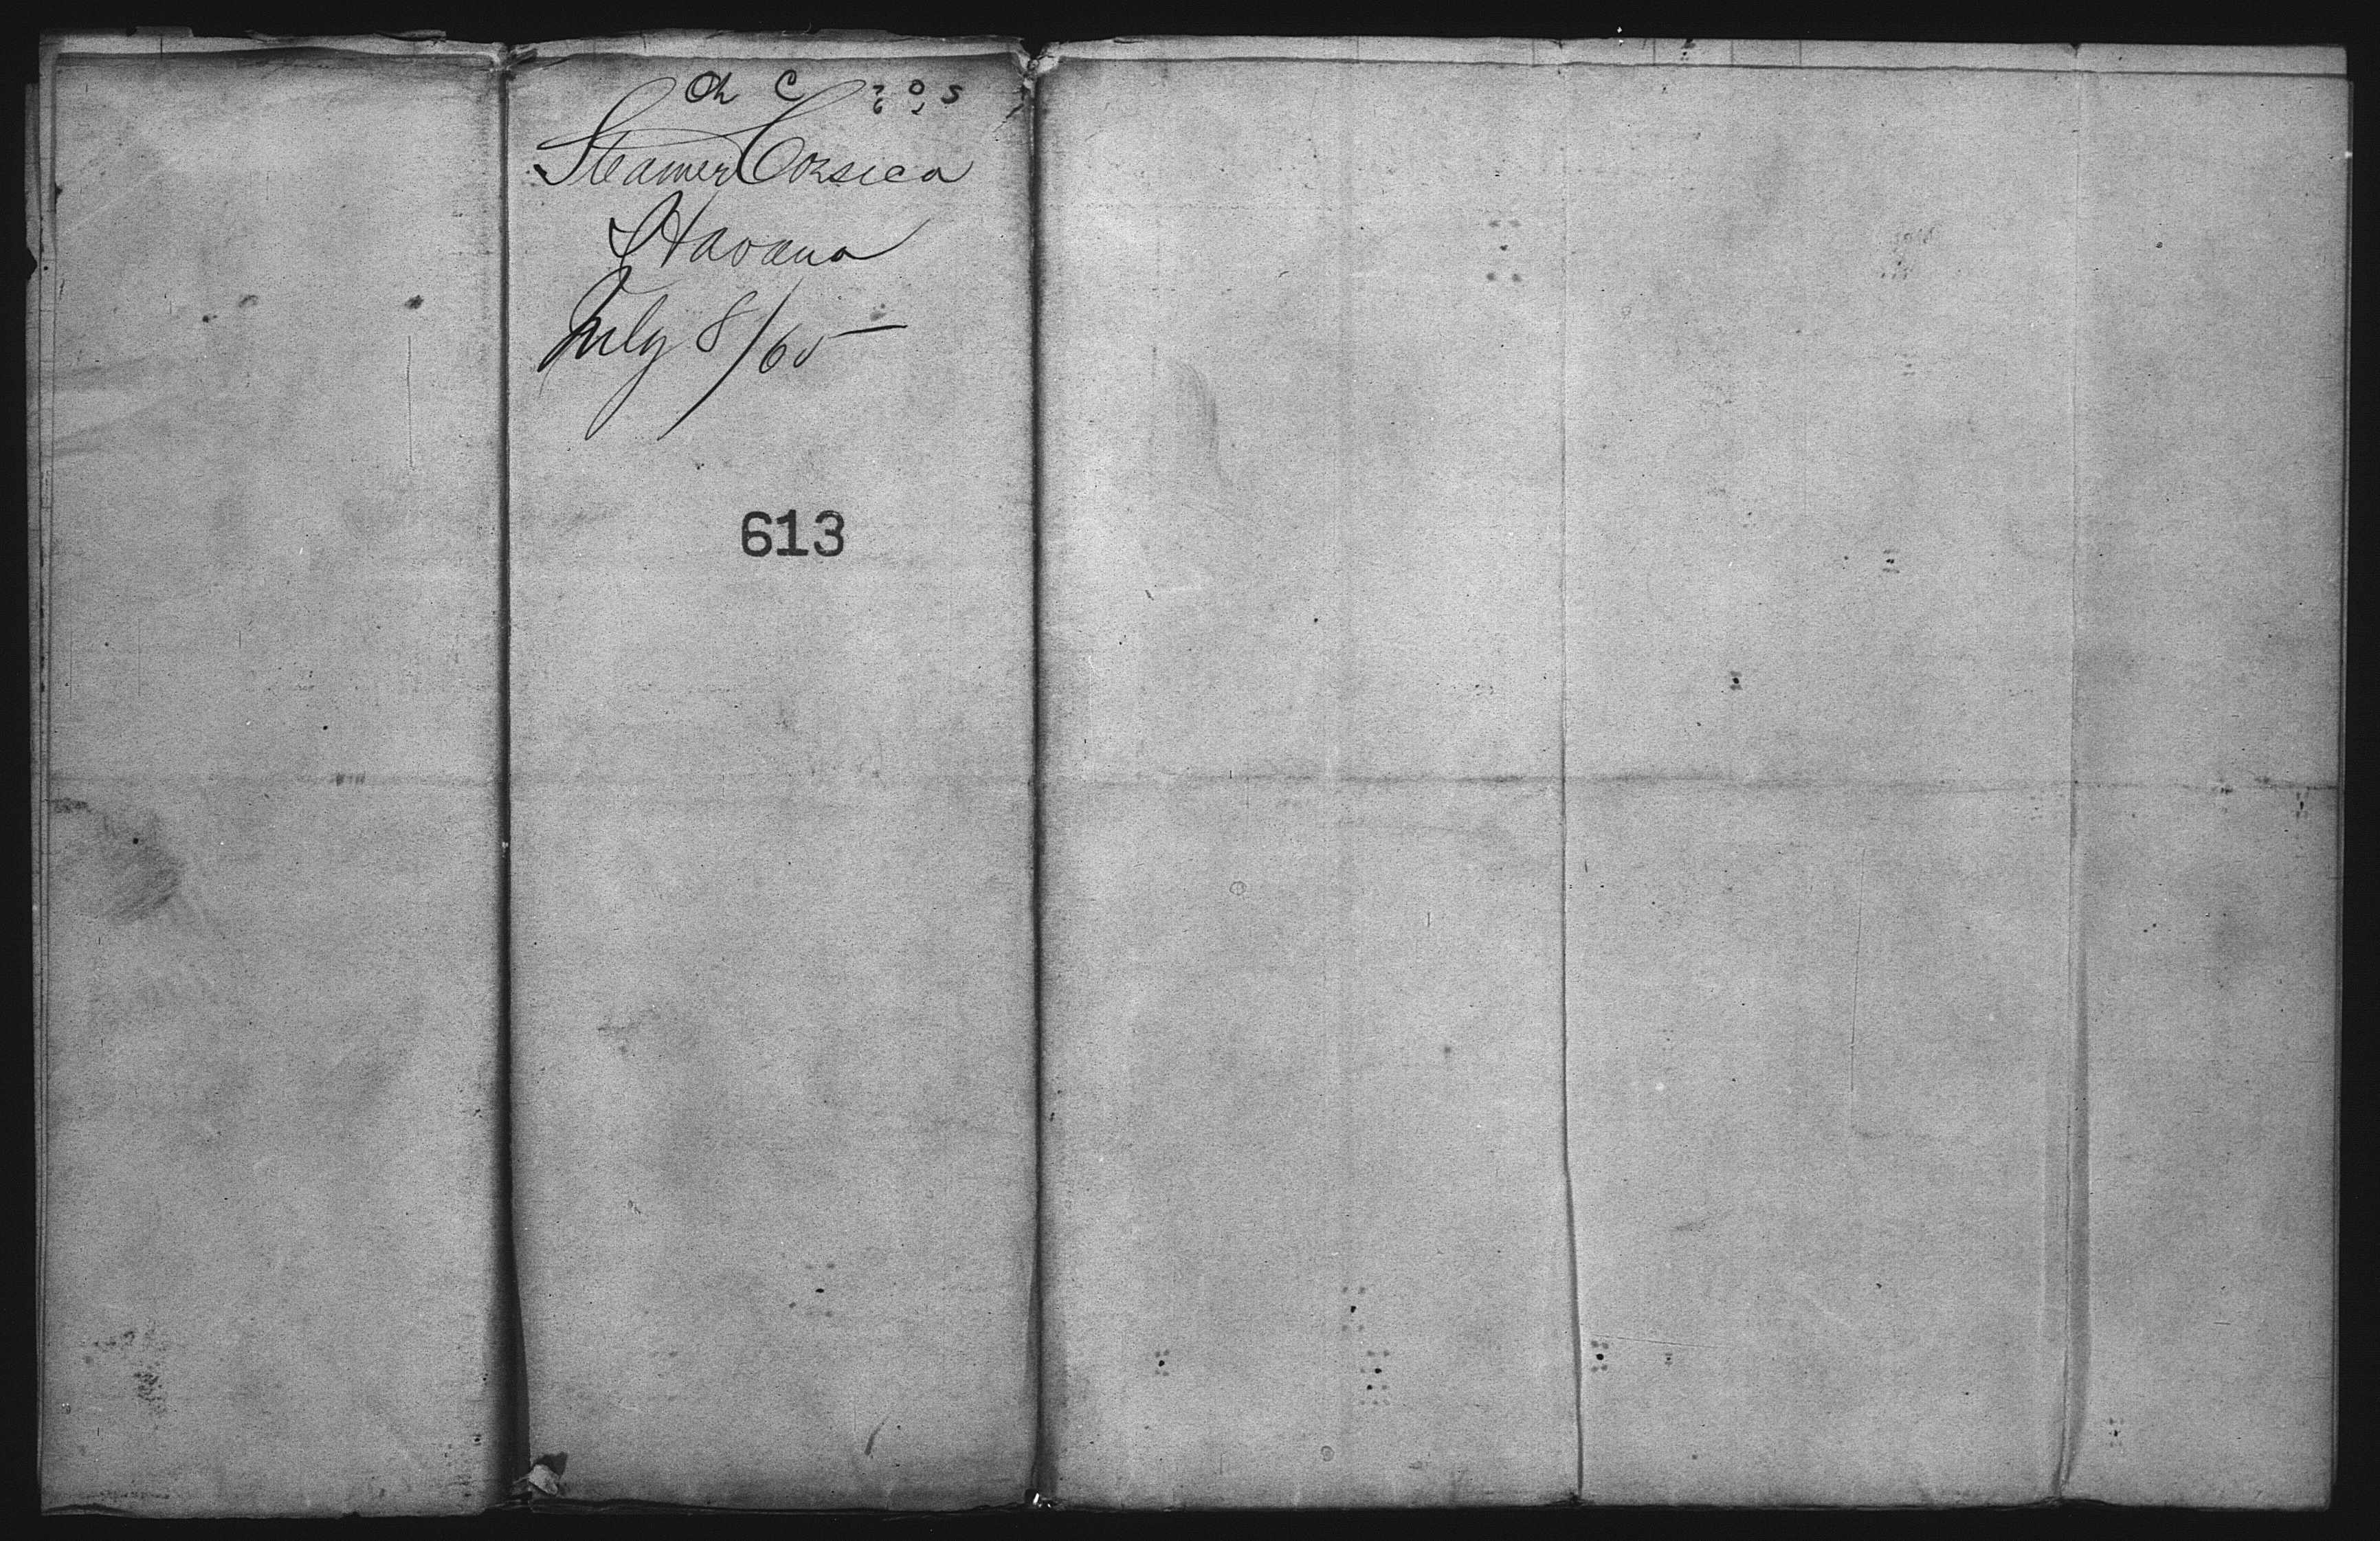 Steamer Corsica
Havana
July 8/65
613